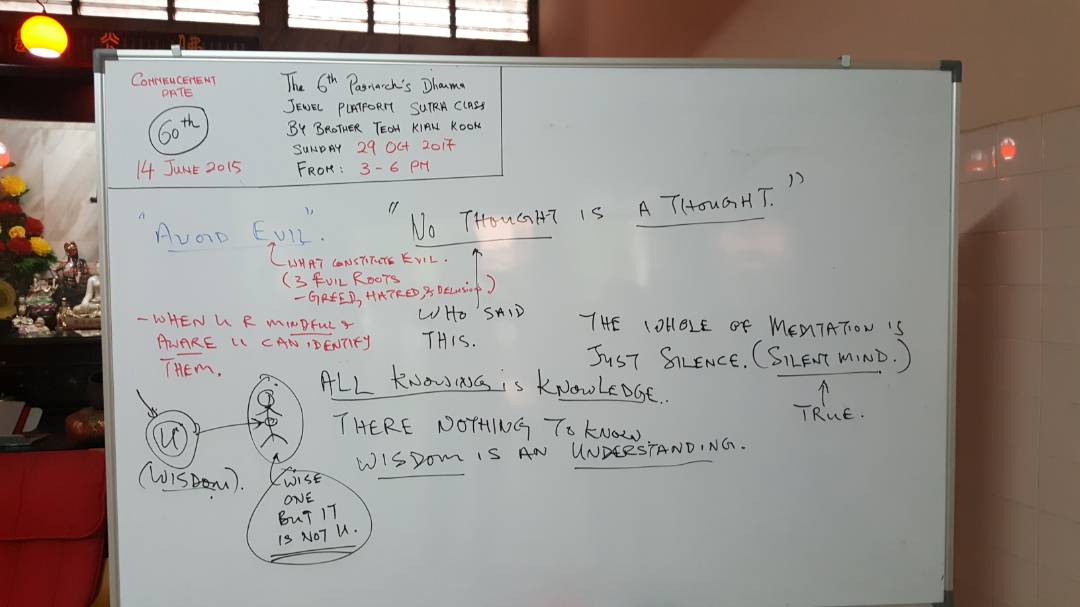 COMMENCEMENT
DATE
60th
14 JUNE 2015
The 6th Patriarch's Dharma
JEWEL PLATFORM SUTRA CLASS
BY BROTHER TEOH KIAN KOON
SUNDAY 29 OCT 2017
FROM: 3-6 PM
"AVOID EVIL".
WHAT CONSTITUTE EVIL.
(3 EVIL ROOTS
- GREED, HATRED & DELUSION)
- WHEN U R MINDFUL &
AWARE U CAN IDENTIFY
THEM.
"NO THOUGHT IS A THOUGHT."
WHO SAID
THIS.
THE WHOLE OF MEDITATION IS
JUST SILENCE. (SILENT MIND.)
TRUE.
ALL KNOWING is KNOWLEDGE..
THERE NOTHING TO KNOW.
WISDOM IS AN UNDERSTANDING.
U
(WISDOM).
WISE
ONE
BUT IT
IS NOT U.